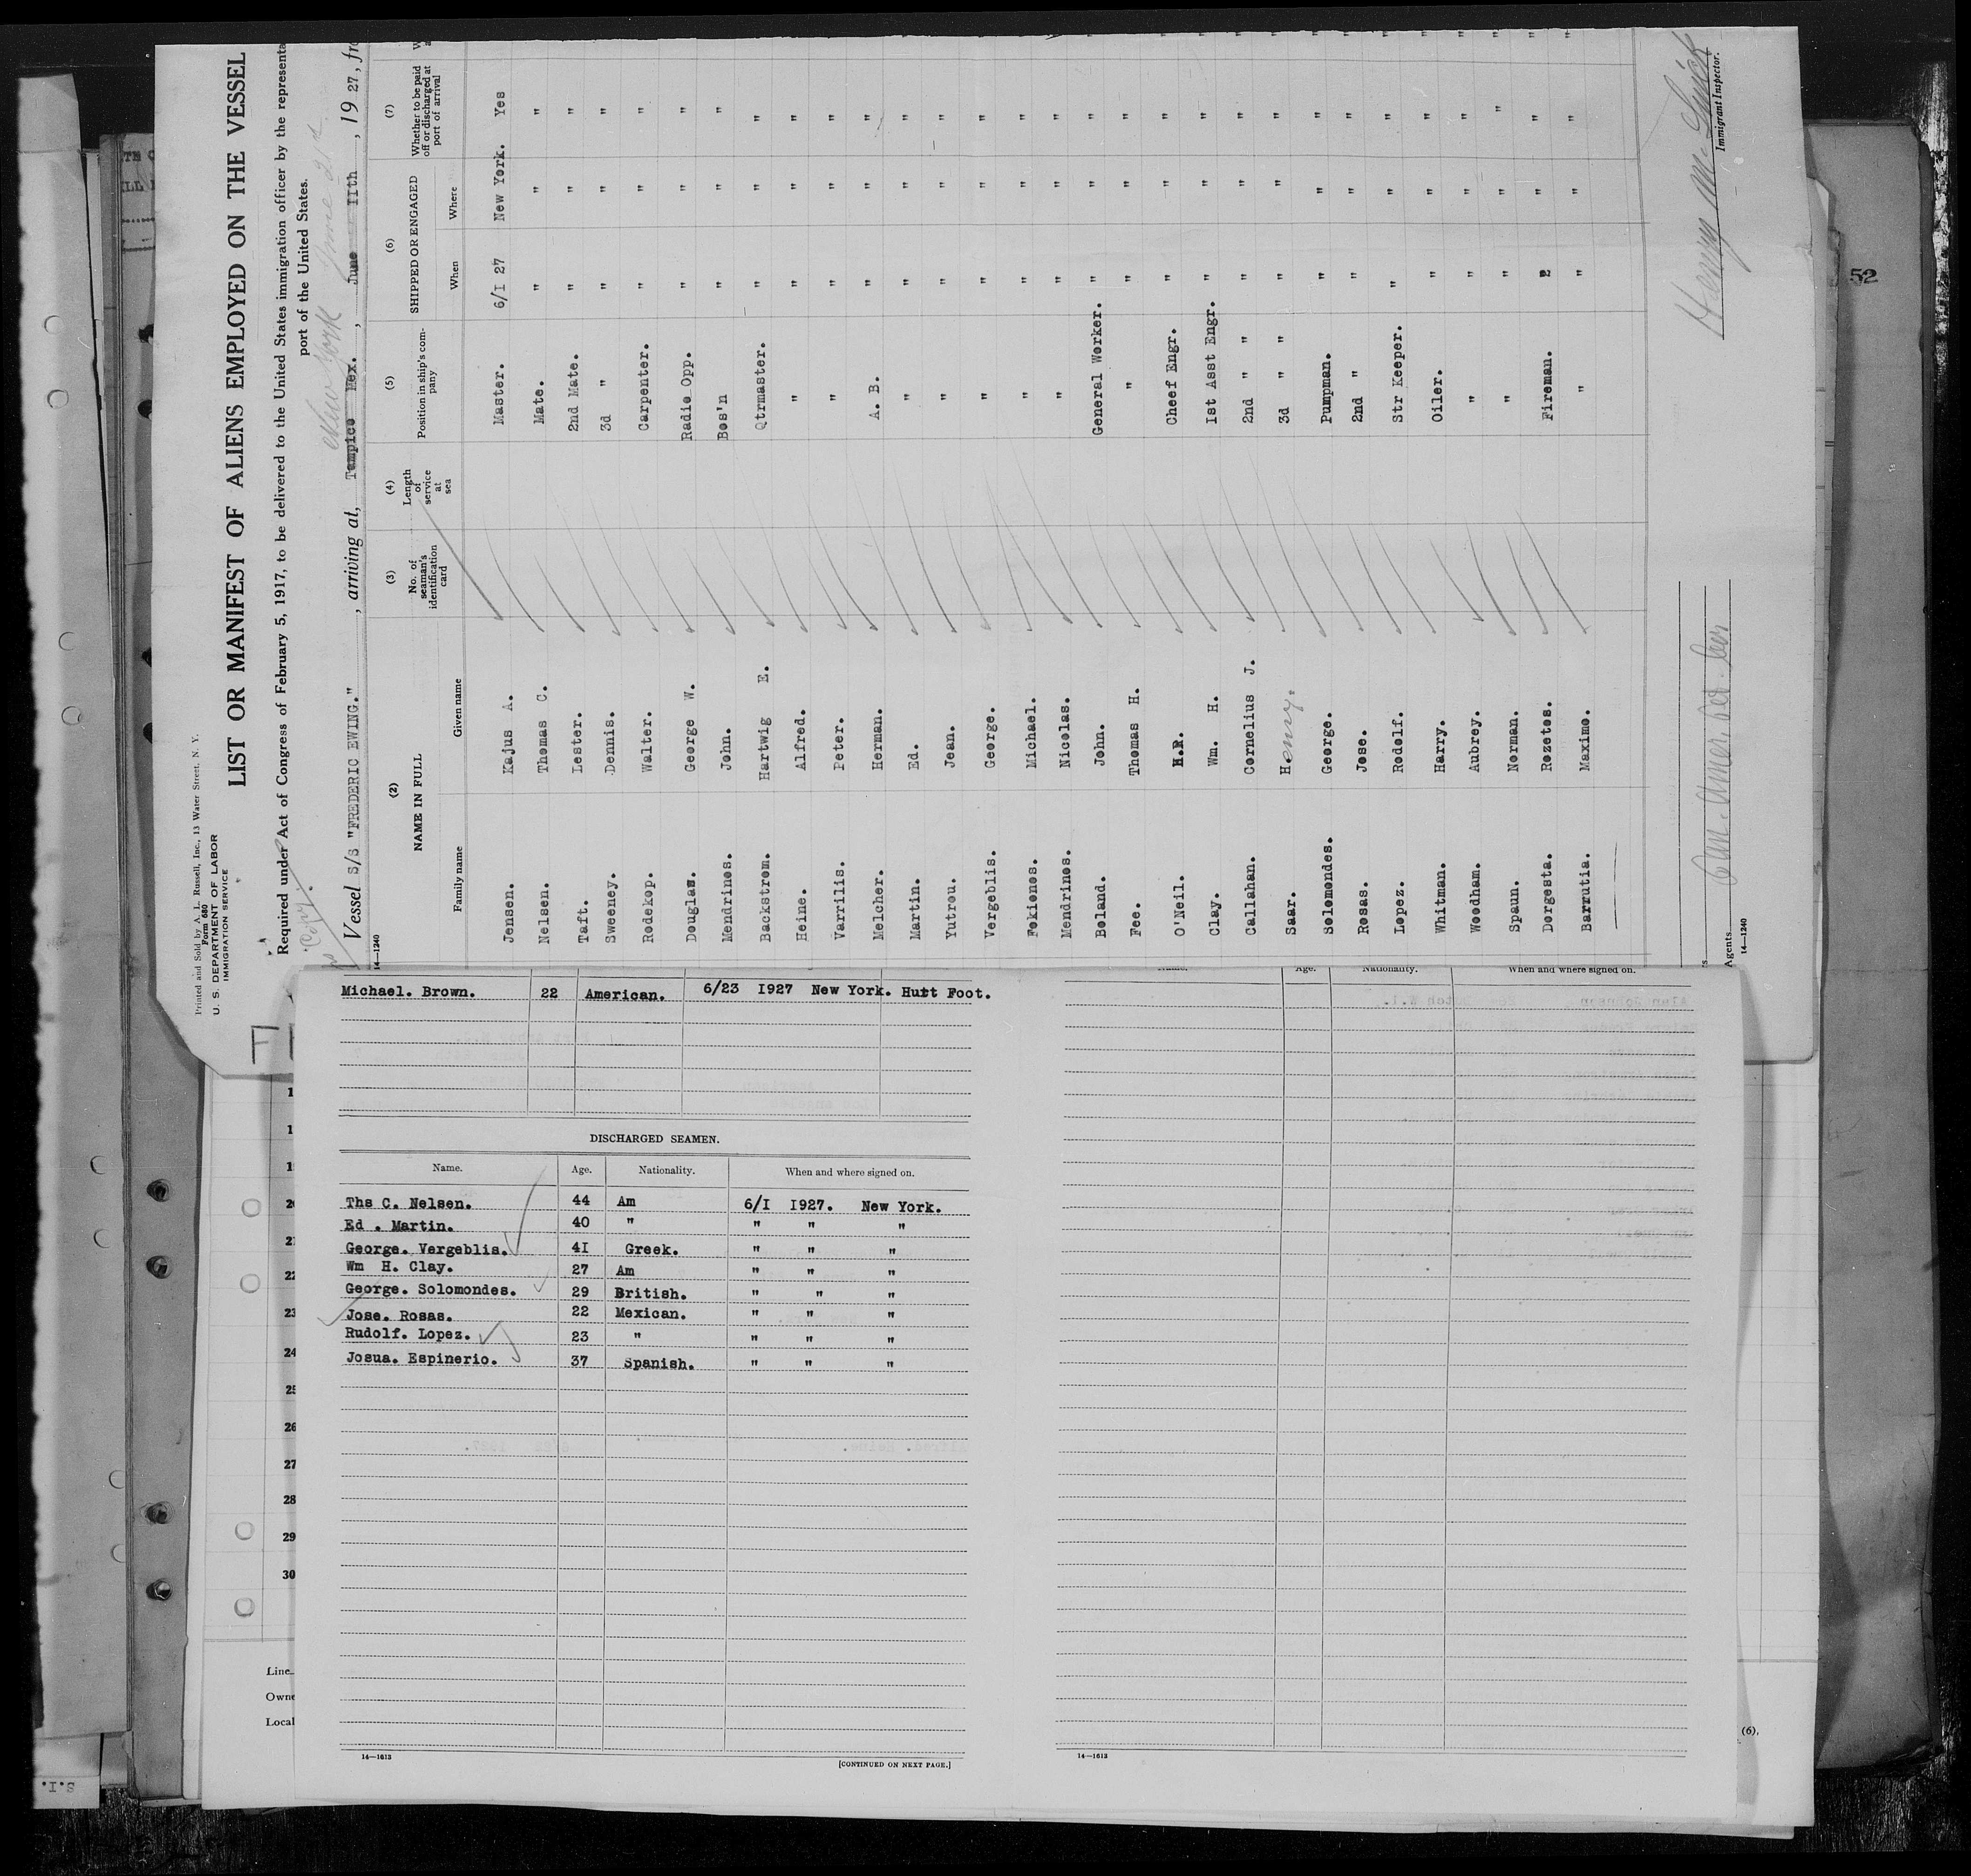 Printed and Sold by A. L. Russell, Inc., 13 Water Street, N. Y.
Form 680
U. S. DEPARTMENT OF LABOR
IMMIGRATION SERVICE
LIST OR MANIFEST OF ALIENS EMPLOYED ON THE VESSEL
Required under Act of Congress of February 5, 1917, to be delivered to the United States immigration officer by the representa
port of the United States.
New York June 21st
Vessel S/S "FREDERIC EWING." , arriving at, Tampico Mex. , June IIth , 19 27, fro
14—1240
(2) (3) (4) (5) (6) (7)
NAME IN FULL No. of seaman's identification card Length of service at sea Position in ship's company SHIPPED OR ENGAGED Whether to be paid off or discharged at port of arrival
Family name Given name When Where
Jensen. Kajus A. Master. 6/I 27 New York. Yes
Nelsen. Thomas C. Mate. " " "
Taft. Lester. 2nd Mate. " " "
Sweeney. Dennis. 3d " " " "
Rodekop. Walter. Carpenter. " " "
Douglas. George W. Radio Opp. " " "
Mendrines. John. Bos'n " " "
Backstrom. Hartwig E. Qtrmaster. " " "
Heine. Alfred. " " " "
Varrilis. Peter. " " " "
Melcher. Herman. A. B. " " "
Martin. Ed. " " " "
Yutrou. Jean. " " " "
Vergeblis. George. " " " "
Fokiones. Michael. " " " "
Mendrines. Nicolas. " " " "
Boland. John. General Worker. " " "
Fee. Thomas H. " " " "
O'Neil. H.R. Cheef Engr. " " "
Clay. Wm. H. Ist Asst Engr. " " "
Callahan. Cornelius J. 2nd " " " " "
Saar. Henny. 3d " " " " "
Solomondes. George. Pumpman. " " "
Rosas. Jose. 2nd " " " "
Lopez. Rodolf. Str Keeper. " " "
Whitman. Harry. Oiler. " " "
Woodham. Aubrey. " " " "
Spaun. Norman. " " " "
Dorgesta. Rozetos. Fireman. " " "
Barrutia. Maximo. " " " "
Agents
14—1240
Immigrant Inspector.
52
Michael. Brown. 22 American. 6/23 I927 New York. Hurt Foot.
DISCHARGED SEAMEN.
Name. Age. Nationality. When and where signed on.
Ths C. Nelsen. 44 Am 6/I I927. New York.
Ed . Martin. 40 " " " "
George. Vergeblis. 4I Greek. " " "
Wm H. Clay. 27 Am " " "
George. Solomondes. 29 British. " " "
Jose. Rosas. 22 Mexican. " " "
Rudolf. Lopez. 23 " " " "
Josua. Espinerio. 37 Spanish. " " "
14—1613
[CONTINUED ON NEXT PAGE.]
Age. Nationality. When and where signed on.
14—1613
20
21
22
23
24
25
26
27
28
29
30
Line
Owne
Local
(6),
S.I.